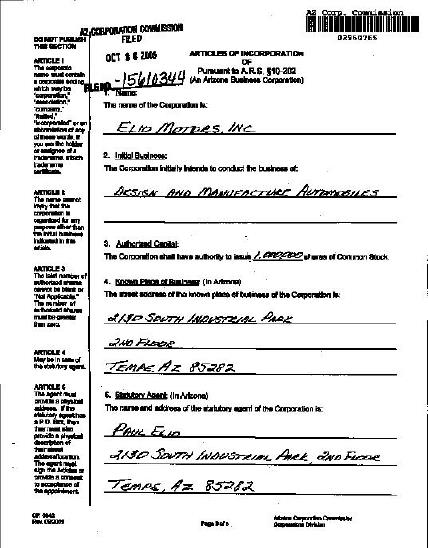 AZ Corp. Commission
02960765
AZ CORPORATION COMMISSION
FILED
OCT 2005
FILE NO. -1561034-4
DO NOT PUBLISH
THIS SECTION
ARTICLES OF INCORPORATION
OF
Pursuant to A.R.S. §10-202
(An Arizona Business Corporation)
ARTICLE 1
The corporate
name must contain
a corporate ending
which may be
"corporation,"
"association,"
"company,"
"limited,"
"incorporated" or an
abbreviation of any
of these words. If
you are the holder
or assignee of a
tradename, attach
tradename
certificate.
1. Name:
The name of the Corporation is:
ELIO MOTORS, INC
2. Initial Business:
The Corporation initially intends to conduct the business of:
DESIGN AND MANUFACTURE AUTOMOBILES
ARTICLE 2
The name cannot
imply that the
corporation is
organized for any
purpose other than
the initial business
indicated in this
article.
3. Authorized Capital:
The Corporation shall have authority to issue 1,000,000 shares of Common Stock.
ARTICLE 3
The total number of
authorized shares
cannot be blank or
"Not Applicable."
The number of
authorized shares
must be greater
than zero.
4. Known Place of Business: (In Arizona)
The street address of the known place of business of the Corporation is:
2130 SOUTH INDUSTRIAL PARK
2ND FLOOR
TEMPE AZ 85282
ARTICLE 4
May be in care of
the statutory agent.
ARTICLE 5
The agent must
provide a physical
address. If the
statutory agent has
a P.O. Box, then
they must also
provide a physical
description of
their street
address/location.
The agent must
sign the Articles or
provide a consent
to acceptance of
the appointment.
5. Statutory Agent: (In Arizona)
The name and address of the statutory agent of the Corporation is:
PAUL ELIO
2130 SOUTH INDUSTRIAL PARK, 2ND FLOOR
TEMPE, AZ 85282
Arizona Corporation Commission
Corporations Division